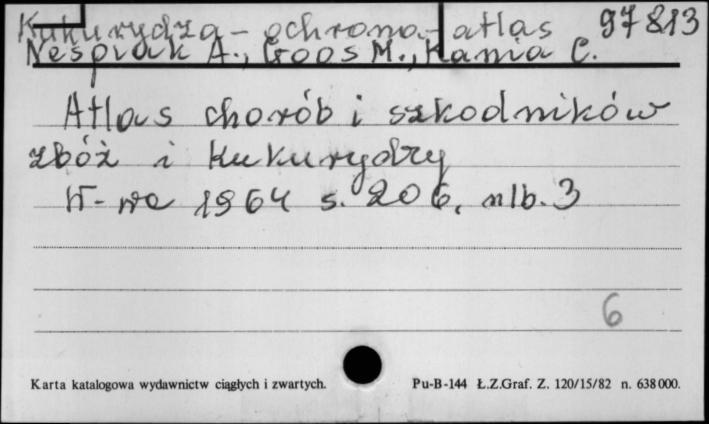 Kukurydza - ochrona - atlas 97813
Nešpiak A., Goos M., Kania C.
Atlas chorób i szkodników
zbóż i kukurydzy
W-wa 1964 s. 206, nlb. 3
6
Karta katalogowa wydawnictw ciągłych i zwartych. Pu-B-144 Ł.Z.Graf. Z. 120/15/82 n. 638000.